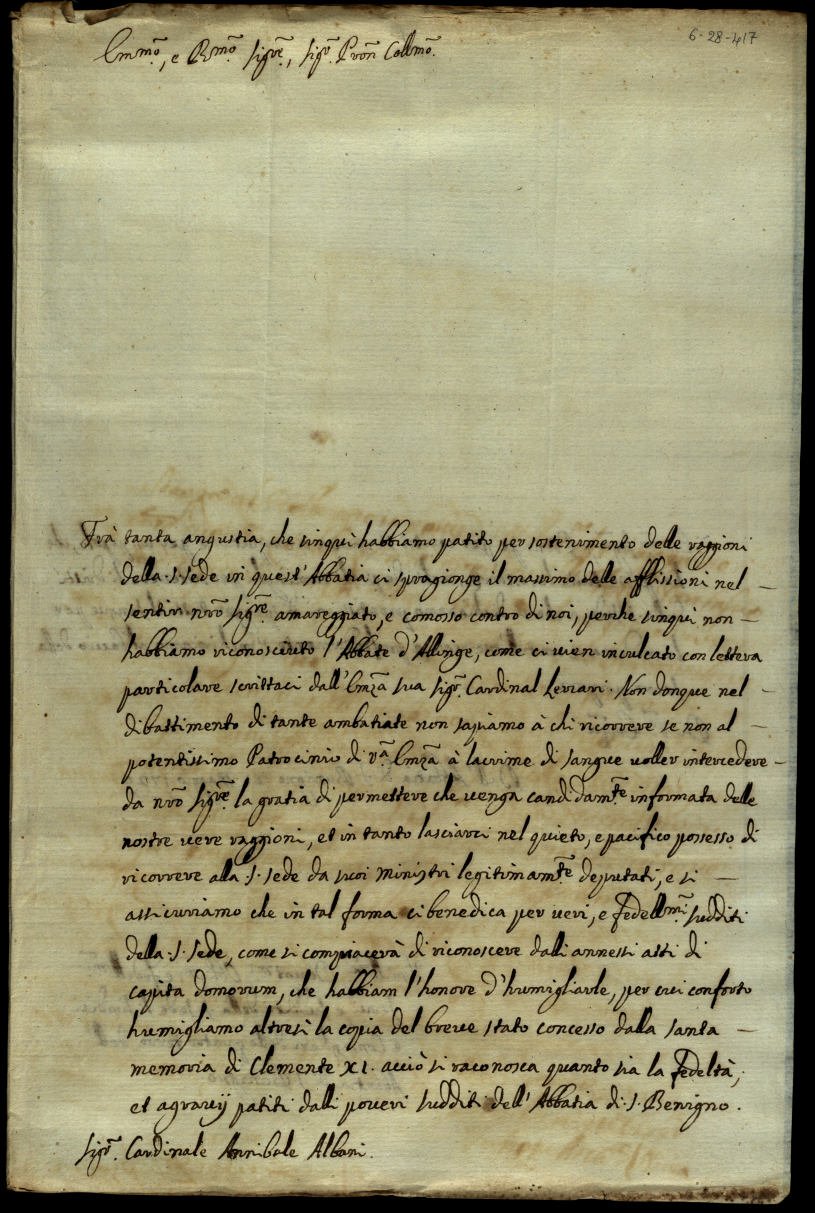 6-28-417
Emmõ, e Rmõ Sigre, Sigr Pron Collmõ.
Frà tanta angustia, che sinquì habbiamo patito per sostenimento delle raggioni
della S. Sede in quest'Abbatia ci spragionge il massimo delle afflissioni nel
sentir nrõ Sigre amareggiato, e comosso contro di noi, perche sinquì non
habbiamo riconosciuto l'Abbate d'Allinge, come ci vien inculcato con lettera
particolare scrittaci dall'Emza sua Sigr Cardinal Lercari. Non donque nel
dibattimento di tante ambatiate non sapiamo à chi ricorrere se non al
potentissimo Patrocinio di va Emza à lacrime di sangue voller intercedere
da nrõ Sigre la gratia di permettere che venga candidamte informata delle
nostre vere raggioni, et in tanto lasciarci nel quieto, e pacifico possesso di
ricorrere alla S. Sede da suoi ministri legitimamte deputati, e si
assicuriamo che in tal forma ci benedica per veri, e fedellmi sudditi
della S. Sede, come si compiacerà di riconoscere dalli annessi atti di
capita domorum, che habbiam l'honore d'humigliarle, per cui conforto
humigliamo altresì la copia del breve stato concesso dalla santa
memoria di Clemente XI. acciò si raconosca quanto sia la fedeltà,
et agravij patiti dalli poveri sudditi dell'Abbatia di S. Benigno.
Sigr. Cardinale Annibale Albani.